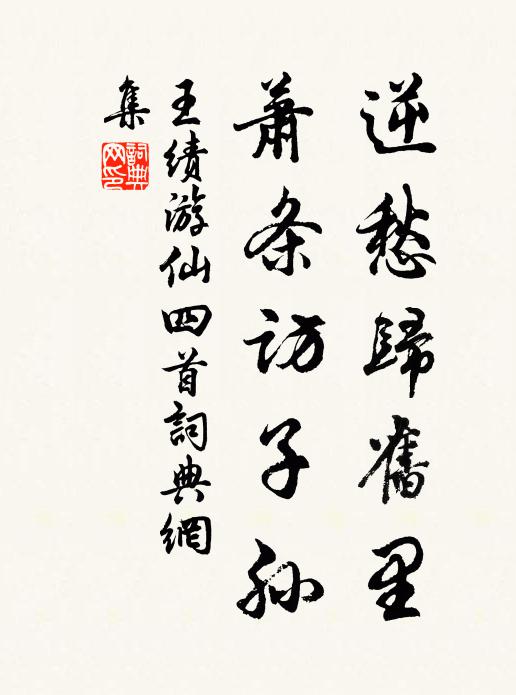 逆愁歸舊里
蕭条訪子孫
王績游仙四首詞典網
集
詞典
网印